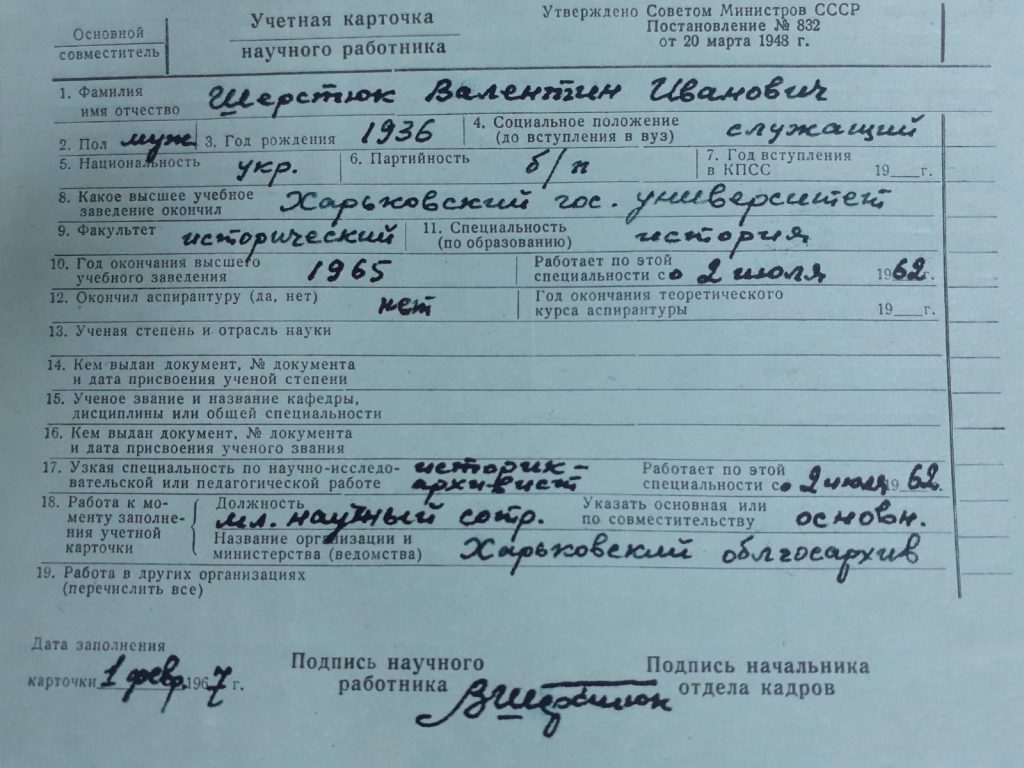 Основной
совместитель
Учетная карточка
научного работника
Утверждено Советом Министров СССР
Постановление № 832
от 20 марта 1948 г.
1. Фамилия
имя отчество Шерстюк Валентин Иванович
2. Пол муж 3. Год рождения 1936 4. Социальное положение
(до вступления в вуз) служащий
5. Национальность укр. 6. Партийность б/п 7. Год вступления
в КПСС 19__г.
8. Какое высшее учебное
заведение окончил Харьковский гос. университет
9. Факультет исторический 11. Специальность
(по образованию) история
10. Год окончания высшего
учебного заведения 1965 Работает по этой
специальности с 2 июля 1962г.
12. Окончил аспирантуру (да, нет) нет Год окончания теоретического
курса аспирантуры 19__г.
13. Ученая степень и отрасль науки
14. Кем выдан документ, № документа
и дата присвоения ученой степени
15. Ученое звание и название кафедры,
дисциплины или общей специальности
16. Кем выдан документ, № документа
и дата присвоения ученого звания
17. Узкая специальность по научно-исследо-
вательской или педагогической работе историк-
архивист Работает по этой
специальности с 2 июля 1962.
18. Работа к мо-
менту заполне-
ния учетной
карточки
Должность
мл. научный сотр. Указать основная или
по совместительству основн.
Название организации и
министерства (ведомства) Харьковский облгосархив
19. Работа в других организациях
(перечислить все)
Дата заполнения
карточки 1 февр. 1967 г.
Подпись научного
работника ВШерстюк
Подпись начальника
отдела кадров